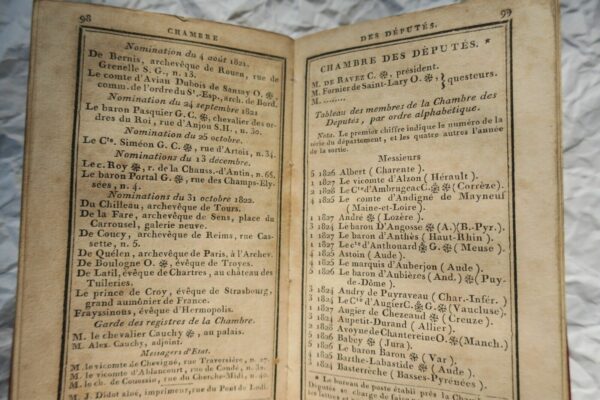 98
CHAMBRE
Nomination du 4 août 1821.
De Bernis, archevêque de Rouen, rue de
Grenelle S. G., n. 13.
Le comte d'Avian Dubois de Sansay O. ,
comm. de l'ordre du St.-Esp., arch. de Bord.
Nomination du 24 septembre 1821
Le baron Pasquier G. C. , chevalier des or-
dres du Roi, rue d'Anjou S.H., n. 30.
Nomination du 25 octobre.
Le Cte. Siméon G. C. , rue d'Artois, n. 34.
Nominations du 13 décembre.
Le c. Roy , r. de la Chauss.-d'Antin, n. 66.
Le baron Portal G. , rue des Champs-Ely-
sées, n. 4.
Nominations du 31 octobre 1822.
Du Chilleau, archevêque de Tours.
De la Fare, archevêque de Sens, place du
Carrousel, galerie neuve.
De Coucy, archevêque de Reims, rue Cas-
sette, n. 5.
De Quélen, archevêque de Paris, à l'Archev.
De Boulogne O. , évêque de Troyes.
De Latil, évêque de Chartres, au château des
Tuileries.
Le prince de Croy, évêque de Strasbourg,
grand aumônier de France.
Frayssinous, évêque d'Hermopolis.
Garde des registres de la Chambre.
M. le chevalier Cauchy , au palais.
M. Alex. Cauchy, adjoint.
Messagers d'Etat.
M. le vicomte de Chevigné, rue Traversière, n. 27.
M. le vicomte d'Ablancourt, rue de Condé, n. 30.
M. le ch. de Coucssin, rue du Cherche-Midi, n. 40.
M. J. Didot aîné, imprimeur, rue du Pont de Lodi.
DES DÉPUTÉS.
99
CHAMBRE DES DÉPUTÉS. *
M. DE RAVEZ C. , président.
M. Fornier de Saint-Lary O. , } questeurs.
M. ........
Tableau des membres de la Chambre des
Députés, par ordre alphabétique.
Nota. Le premier chiffre indique le numéro de la
série du département, et les quatre autres l'année
de la sortie.
Messieurs
5 1826 Albert ( Charente ).
1 1827 Le vicomte d'Alzon ( Hérault ).
2 1828 Le Cte d'AmbrugeacC. (Corrèze).
4 1825 Le comte d'Andigné de Mayneuf
(Maine-et-Loire).
1 1827 André ( Lozère ).
1824 Le baron D'Angosse (A.)(B.-Pyr.).
1827 Le baron d'Anthès ( Haut-Rhin ).
1827 Le cte d'Anthouard G. ( Meuse ).
1825 Astoin ( Aude ).
1825 Le marquis d'Auberjon ( Aude ).
1826 Le baron d'Aubières (And.) (Puy-
de-Dôme ).
1824 Audry de Puyraveau (Char.-Infér. )
1824 Le Cte d'AugierC. (Vaucluse).
1827 Augier de Chezenaud (Creuze).
1824 Aupetit-Durand ( Allier ).
1828 Avoyne de ChantereineO. (Manch.)
1826 Babey ( Jura ).
1826 Le baron Baron ( Var ).
1825 Barthe-Labastide ( Aude ).
1824 Basterrèche (Basses-Pyrénées ).
* Le bureau de poste établi près la Chambre
Députés se charge de faire